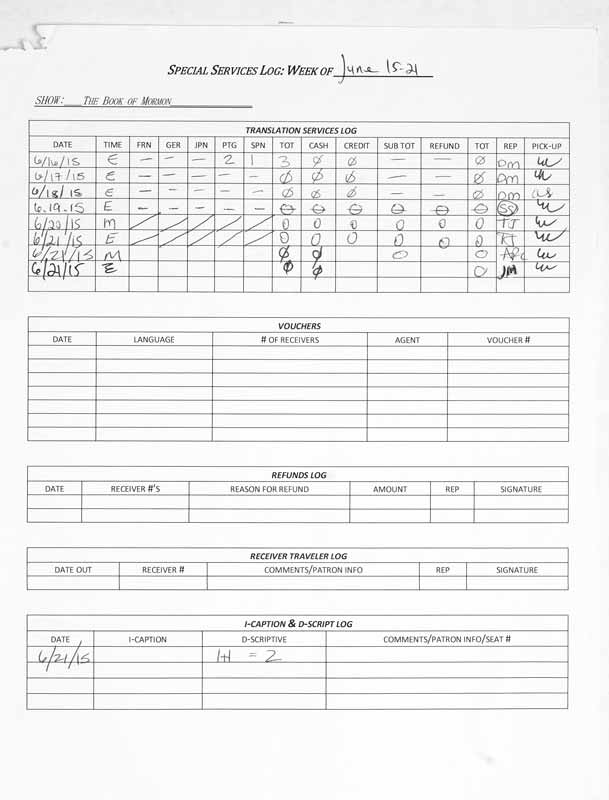 SPECIAL SERVICES LOG: WEEK OF June 15-21
SHOW: THE BOOK OF MORMON
TRANSLATION SERVICES LOG
DATE TIME FRN GER JPN PTG SPN TOT CASH CREDIT SUB TOT REFUND TOT REP PICK-UP
6/16/15 E – – – 2 1 3 Ø Ø – – Ø DM
6/17/15 E – – – – – Ø Ø Ø – – Ø DM
6/18/15 E – – – – – Ø Ø Ø – – Ø DM as
6.19.15 E – – – – – Ɵ Ɵ Ɵ Ɵ Ɵ Ɵ SS
6/20/15 M / / / / / 0 0 0 0 0 0 TJ
6/21/15 E / / / / / 0 0 0 0 0 0
6/21/15 M Ø Ø 0 0
6/21/15 E Ø Ø 0 JM
VOUCHERS
DATE LANGUAGE # OF RECEIVERS AGENT VOUCHER #
REFUNDS LOG
DATE RECEIVER #'S REASON FOR REFUND AMOUNT REP SIGNATURE
RECEIVER TRAVELER LOG
DATE OUT RECEIVER # COMMENTS/PATRON INFO REP SIGNATURE
I-CAPTION & D-SCRIPT LOG
DATE I-CAPTION D-SCRIPTIVE COMMENTS/PATRON INFO/SEAT #
6/21/15 1+1 = 2